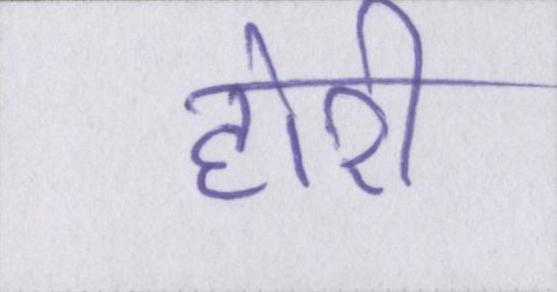 होरी